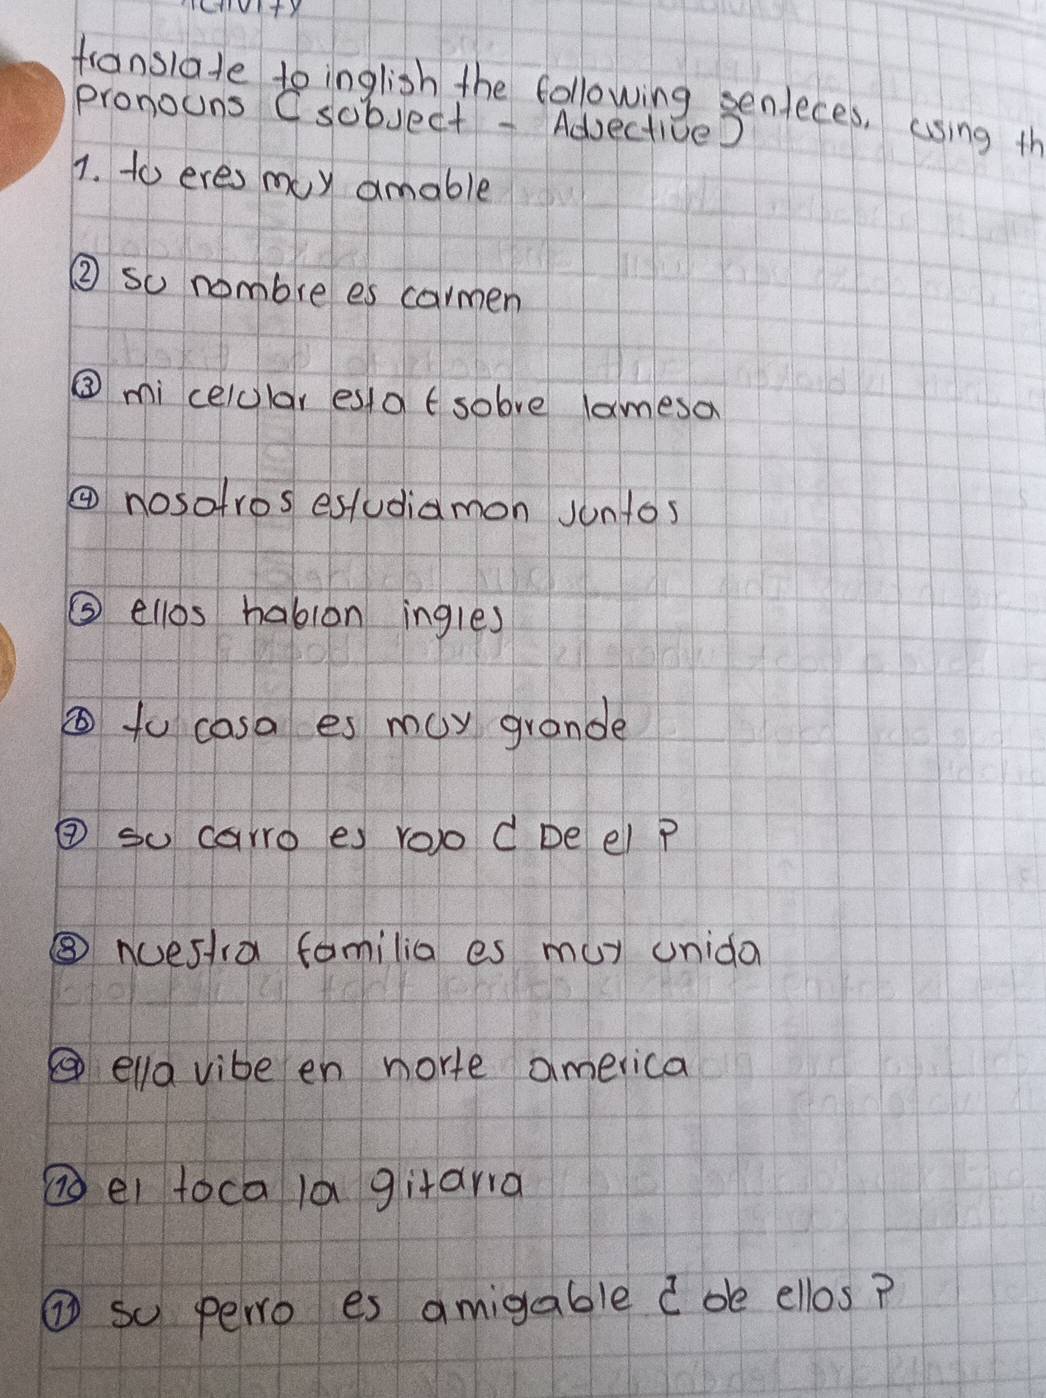 Activity
translate to inglish the following senteces, using th
pronouns (subject - Adjective)
1. tu eres muy amable
② su nombre es carmen
③ mi celular esta (sobre lamesa
④ nosotros estudiamon juntos
⑤ ellos hablan ingles
⑥ tu casa es muy grande
⑦ su carro es rojo ¿ De el ?
⑧ nuestra familia es muy unida
⑨ ella vibe en norte america
⑩ el toca la gitarra
⑪ su perro es amigable ¿ de ellos ?